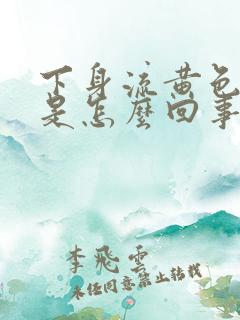 下身流黄色
是怎麼回事
李飛雲
未经同意禁止转载